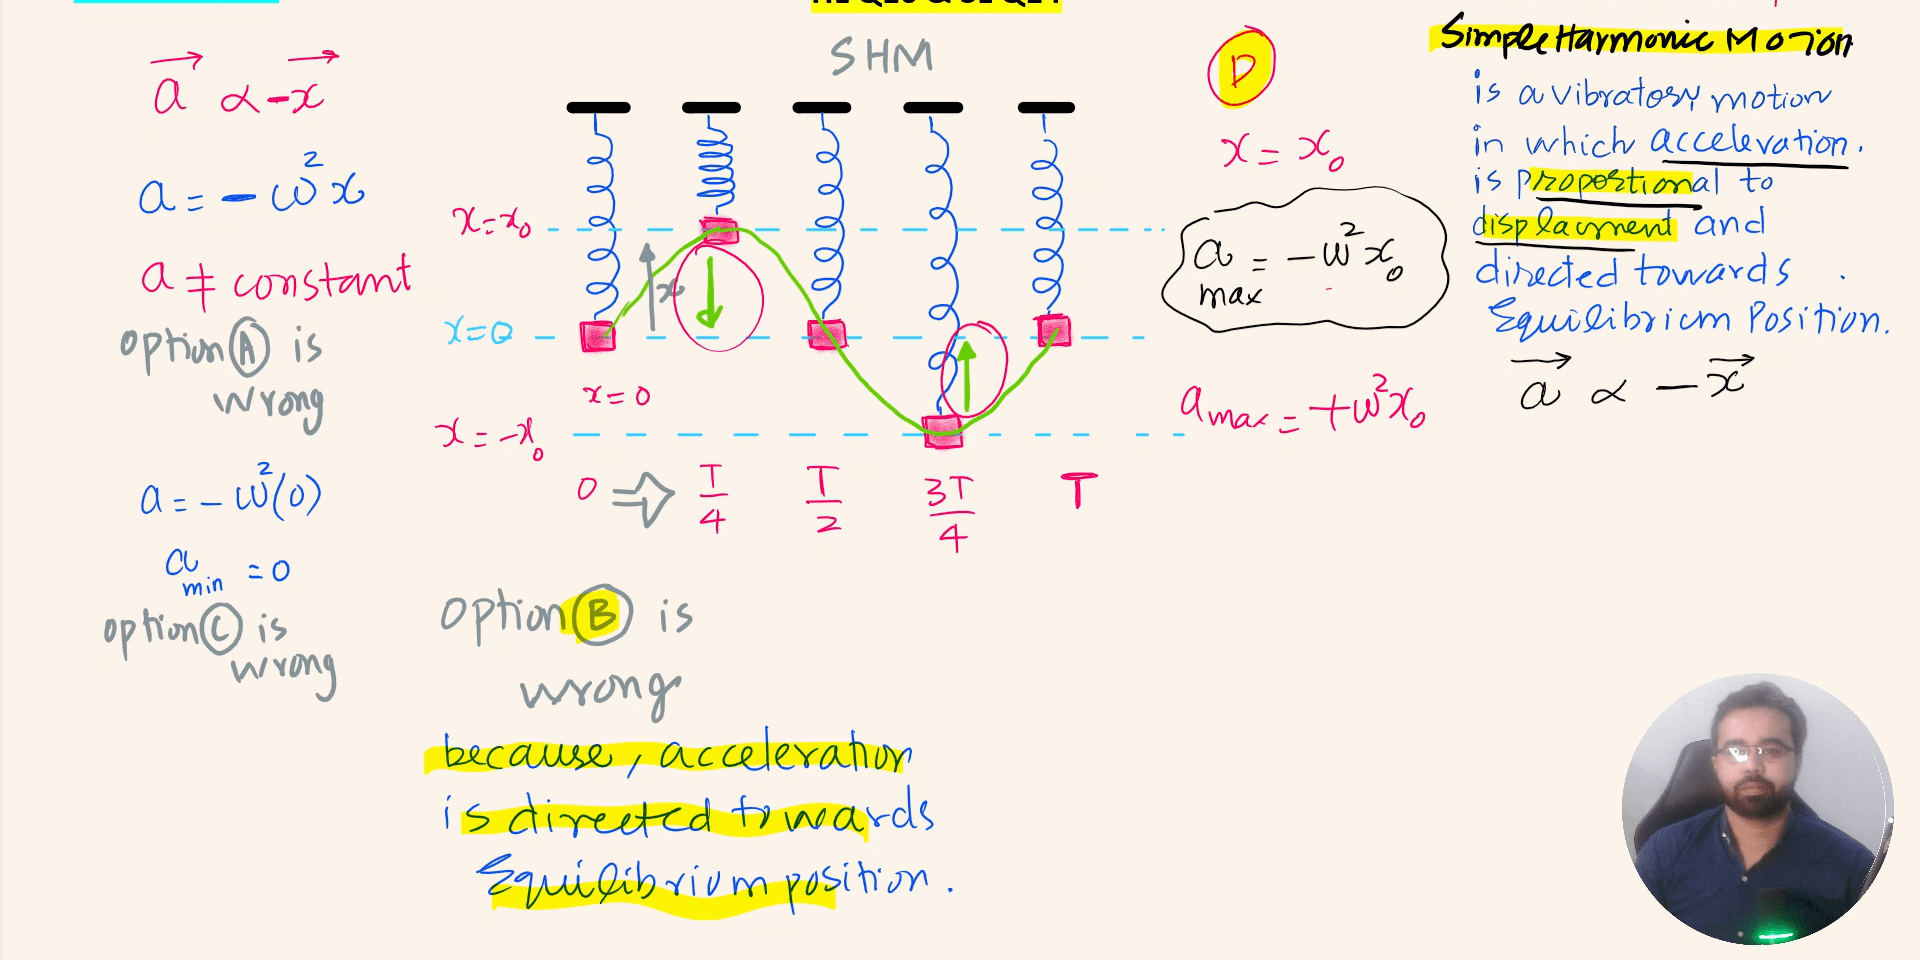 SHM
a ∝ -x
a = - ω²x
a ≠ constant
option A is
wrong
a = - ω²(0)
a min = 0
option C is
wrong
x = x₀
x = 0
x = 0
x = -x₀
x
0 ⇒ T/4 T/2 3T/4 T
option B is
wrong
because, acceleration
is directed towards
Equilibrium position.
D
x = x₀
a max = - ω²x₀
a max = + ω²x₀
Simple Harmonic Motion
is a vibratory motion
in which acceleration.
is proportional to
displacment and
directed towards
Equilibrium Position.
a ∝ - x